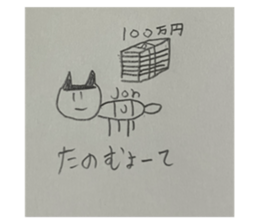 100万円
Jon
たのむよーて